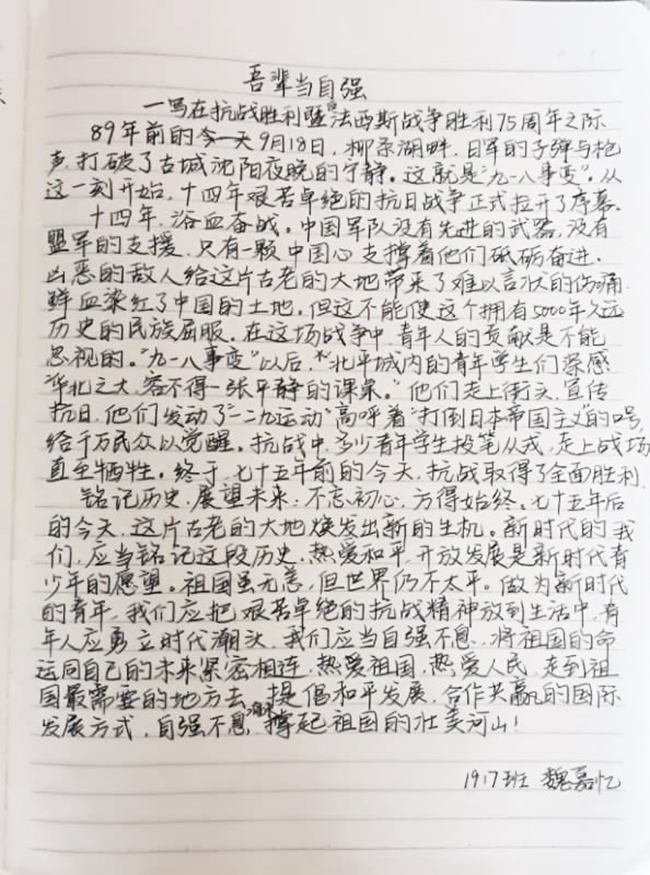 吾辈当自强
—写在抗战胜利暨法西斯战争胜利75周年之际
89年前的今天9月18日,柳条湖畔,日军的子弹与枪
声,打破了古城沈阳夜晚的宁静。这就是"九一八事变"。从
这一刻开始,十四年艰苦卓绝的抗日战争正式拉开了序幕。
十四年,浴血奋战。中国军队没有先进的武器,没有
盟军的支援,只有一颗中国心支撑着他们砥砺奋进.
凶恶的敌人给这片古老的大地带来了难以言状的伤痛,
鲜血染红了中国的土地。但这不能使这个拥有5000年久远
历史的民族屈服。在这场战争中,青年人的贡献是不能
忽视的。"九一八事变"以后,北平城内的青年学生们深感
"华北之大,容不得一张平静的课桌。"他们走上街头,宣传
抗日,他们发动了"一二九运动"高呼着"打倒日本帝国主义"的口号,
给千万民众以觉醒。抗战中,多少青年学生投笔从戎,走上战场
直至牺牲。终于,七十五年前的今天,抗战取得了全面胜利.
铭记历史,展望未来;不忘初心,方得始终。七十五年后
的今天,这片古老的大地焕发出新的生机。新时代的我
们,应当铭记这段历史,热爱和平,开放发展是新时代青
少年的愿望。祖国虽无恙,但世界仍不太平。做为新时代
的青年,我们应把艰苦卓绝的抗战精神放到生活中,青
年人应勇立时代潮头,我们应当自强不息,将祖国的命
运同自己的未来紧密相连,热爱祖国,热爱人民,走到祖
国最需要的地方去,提倡和平发展,合作共赢的国际
发展方式,自强不息,撑起祖国的壮美河山!
1917班 魏嘉忆